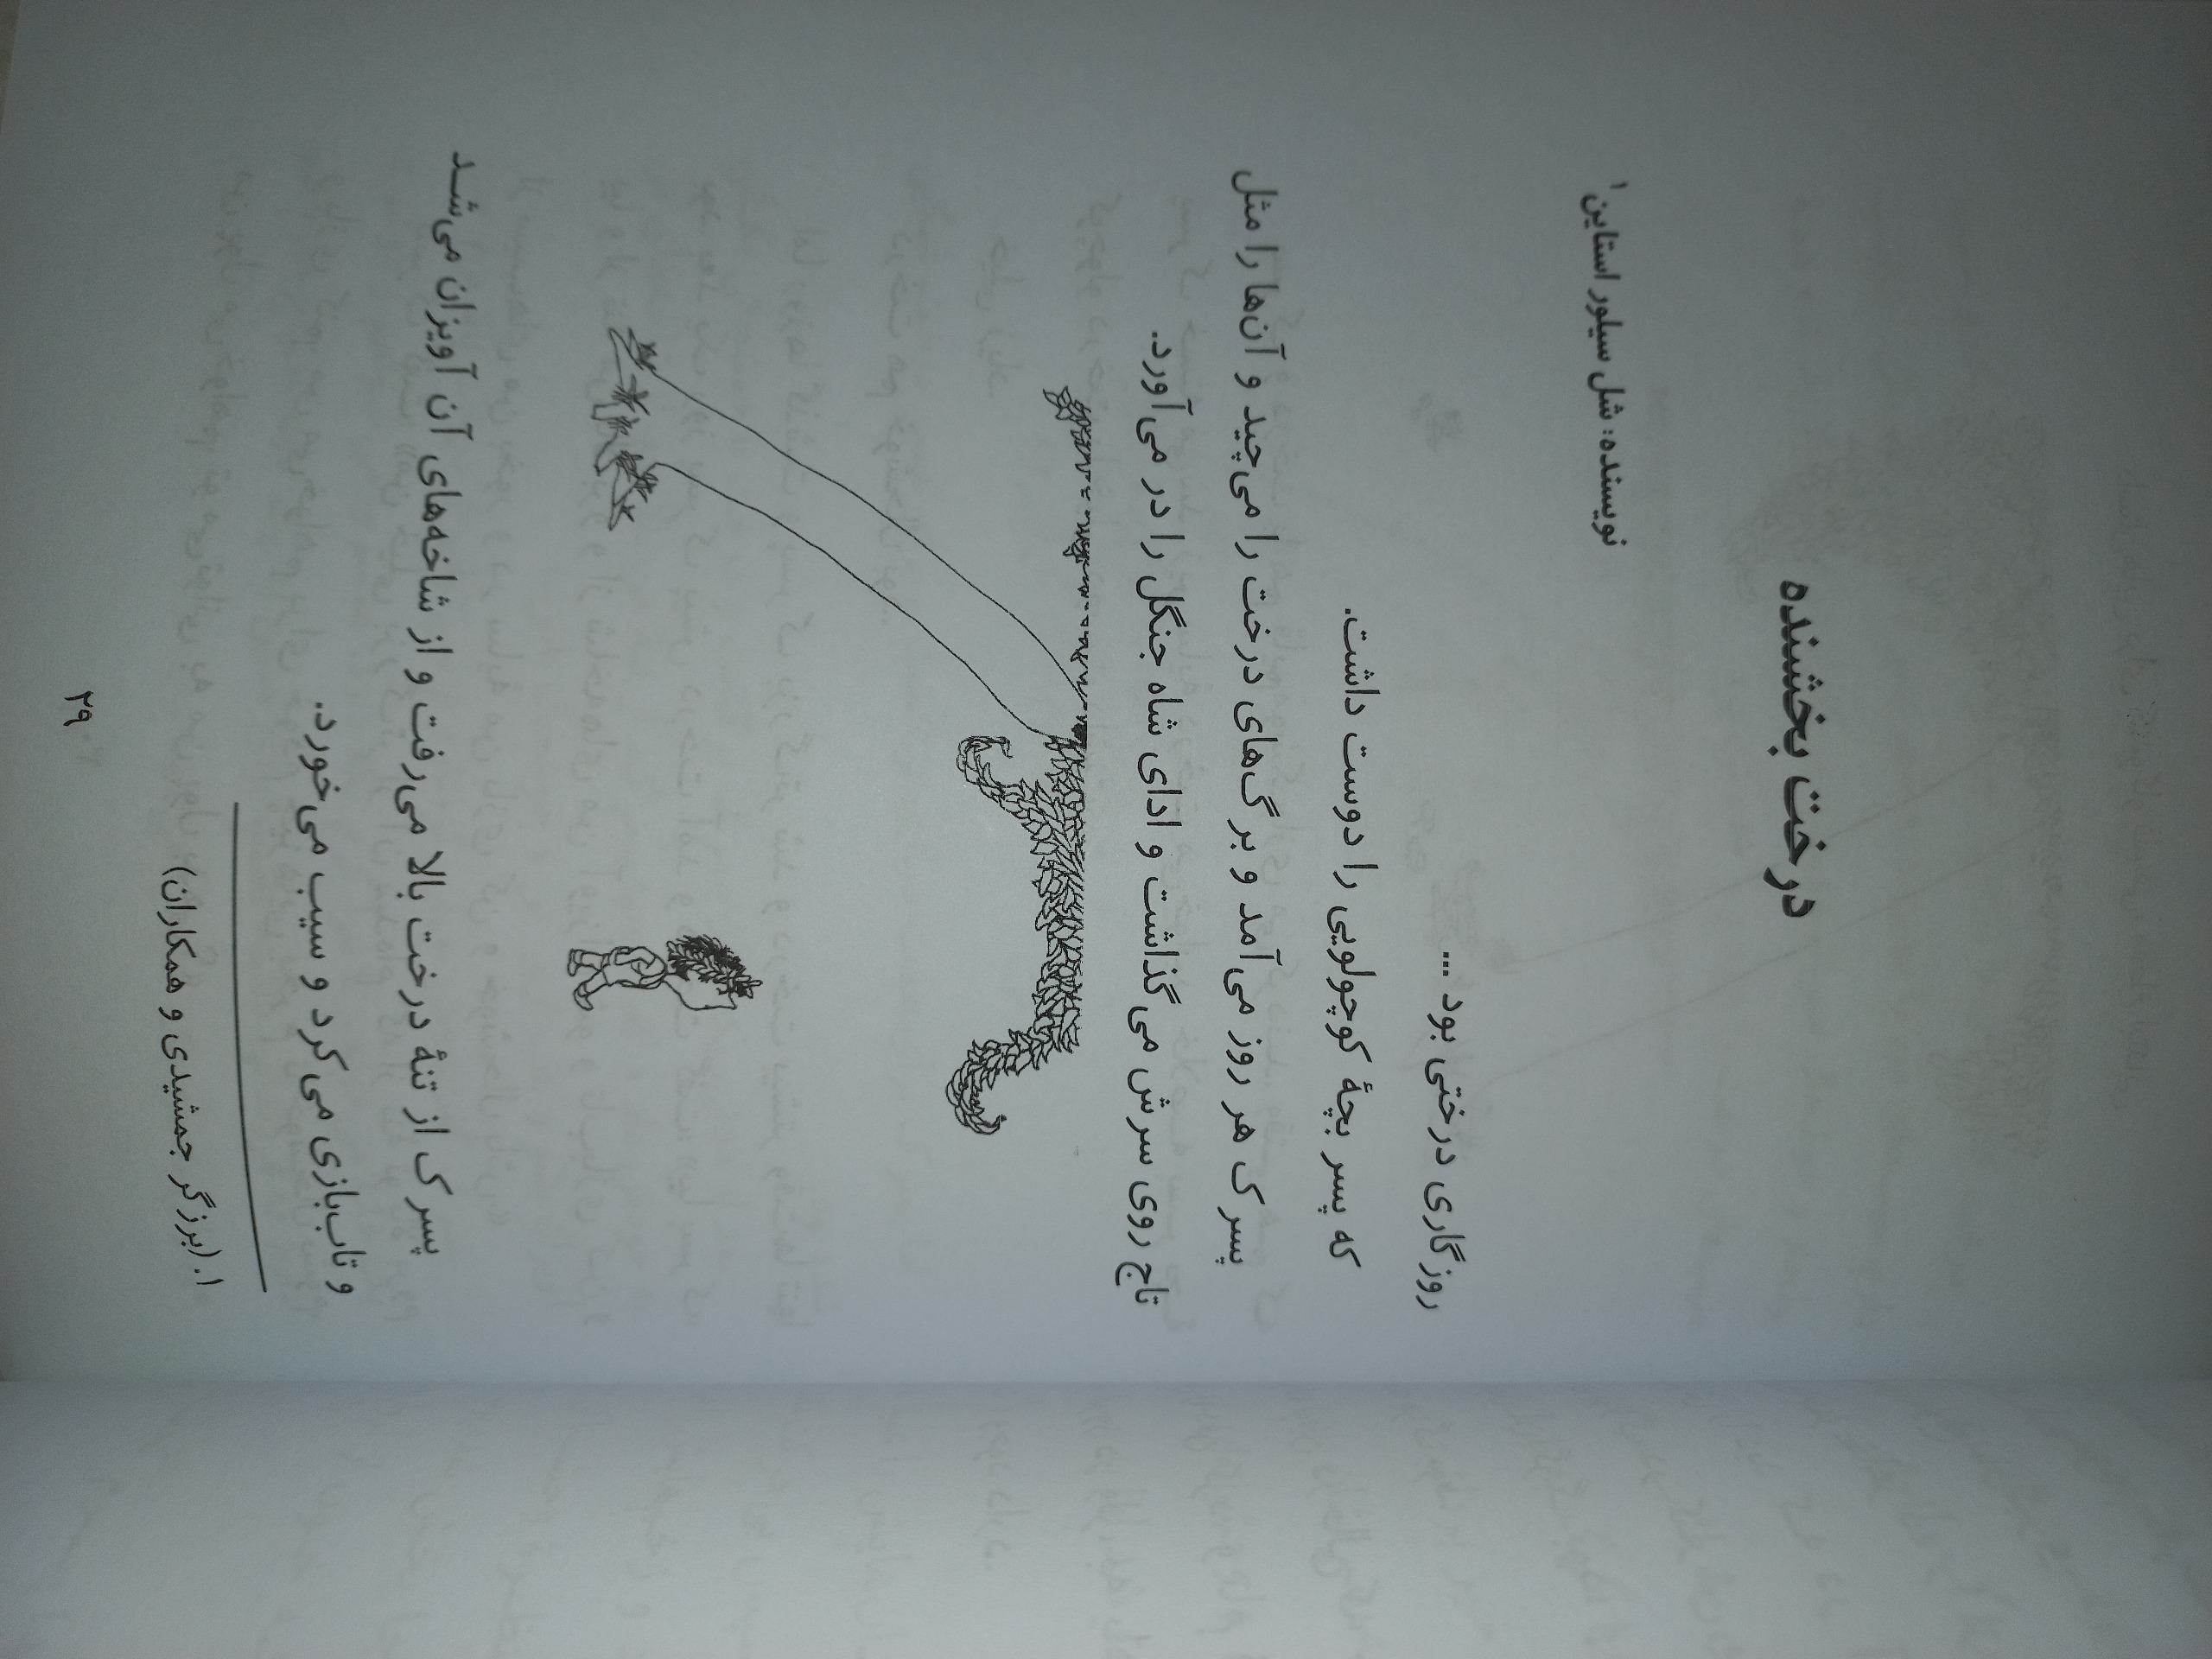 درخت بخشنده
نویسنده: شل سیلور استاین۱
روزگاری درختی بود ...
که پسر بچۀ کوچولویی را دوست داشت.
پسرک هر روز می‌آمد و برگ‌های درخت را می‌چید و آن‌ها را مثل
تاج روی سرش می‌گذاشت و ادای شاه جنگل را در می‌آورد.
پسرک از تنۀ درخت بالا می‌رفت و از شاخه‌های آن آویزان می‌شد
و تاب‌بازی می‌کرد و سیب می‌خورد.
۱. (برزگر جمشیدی و همکاران)
۳۹